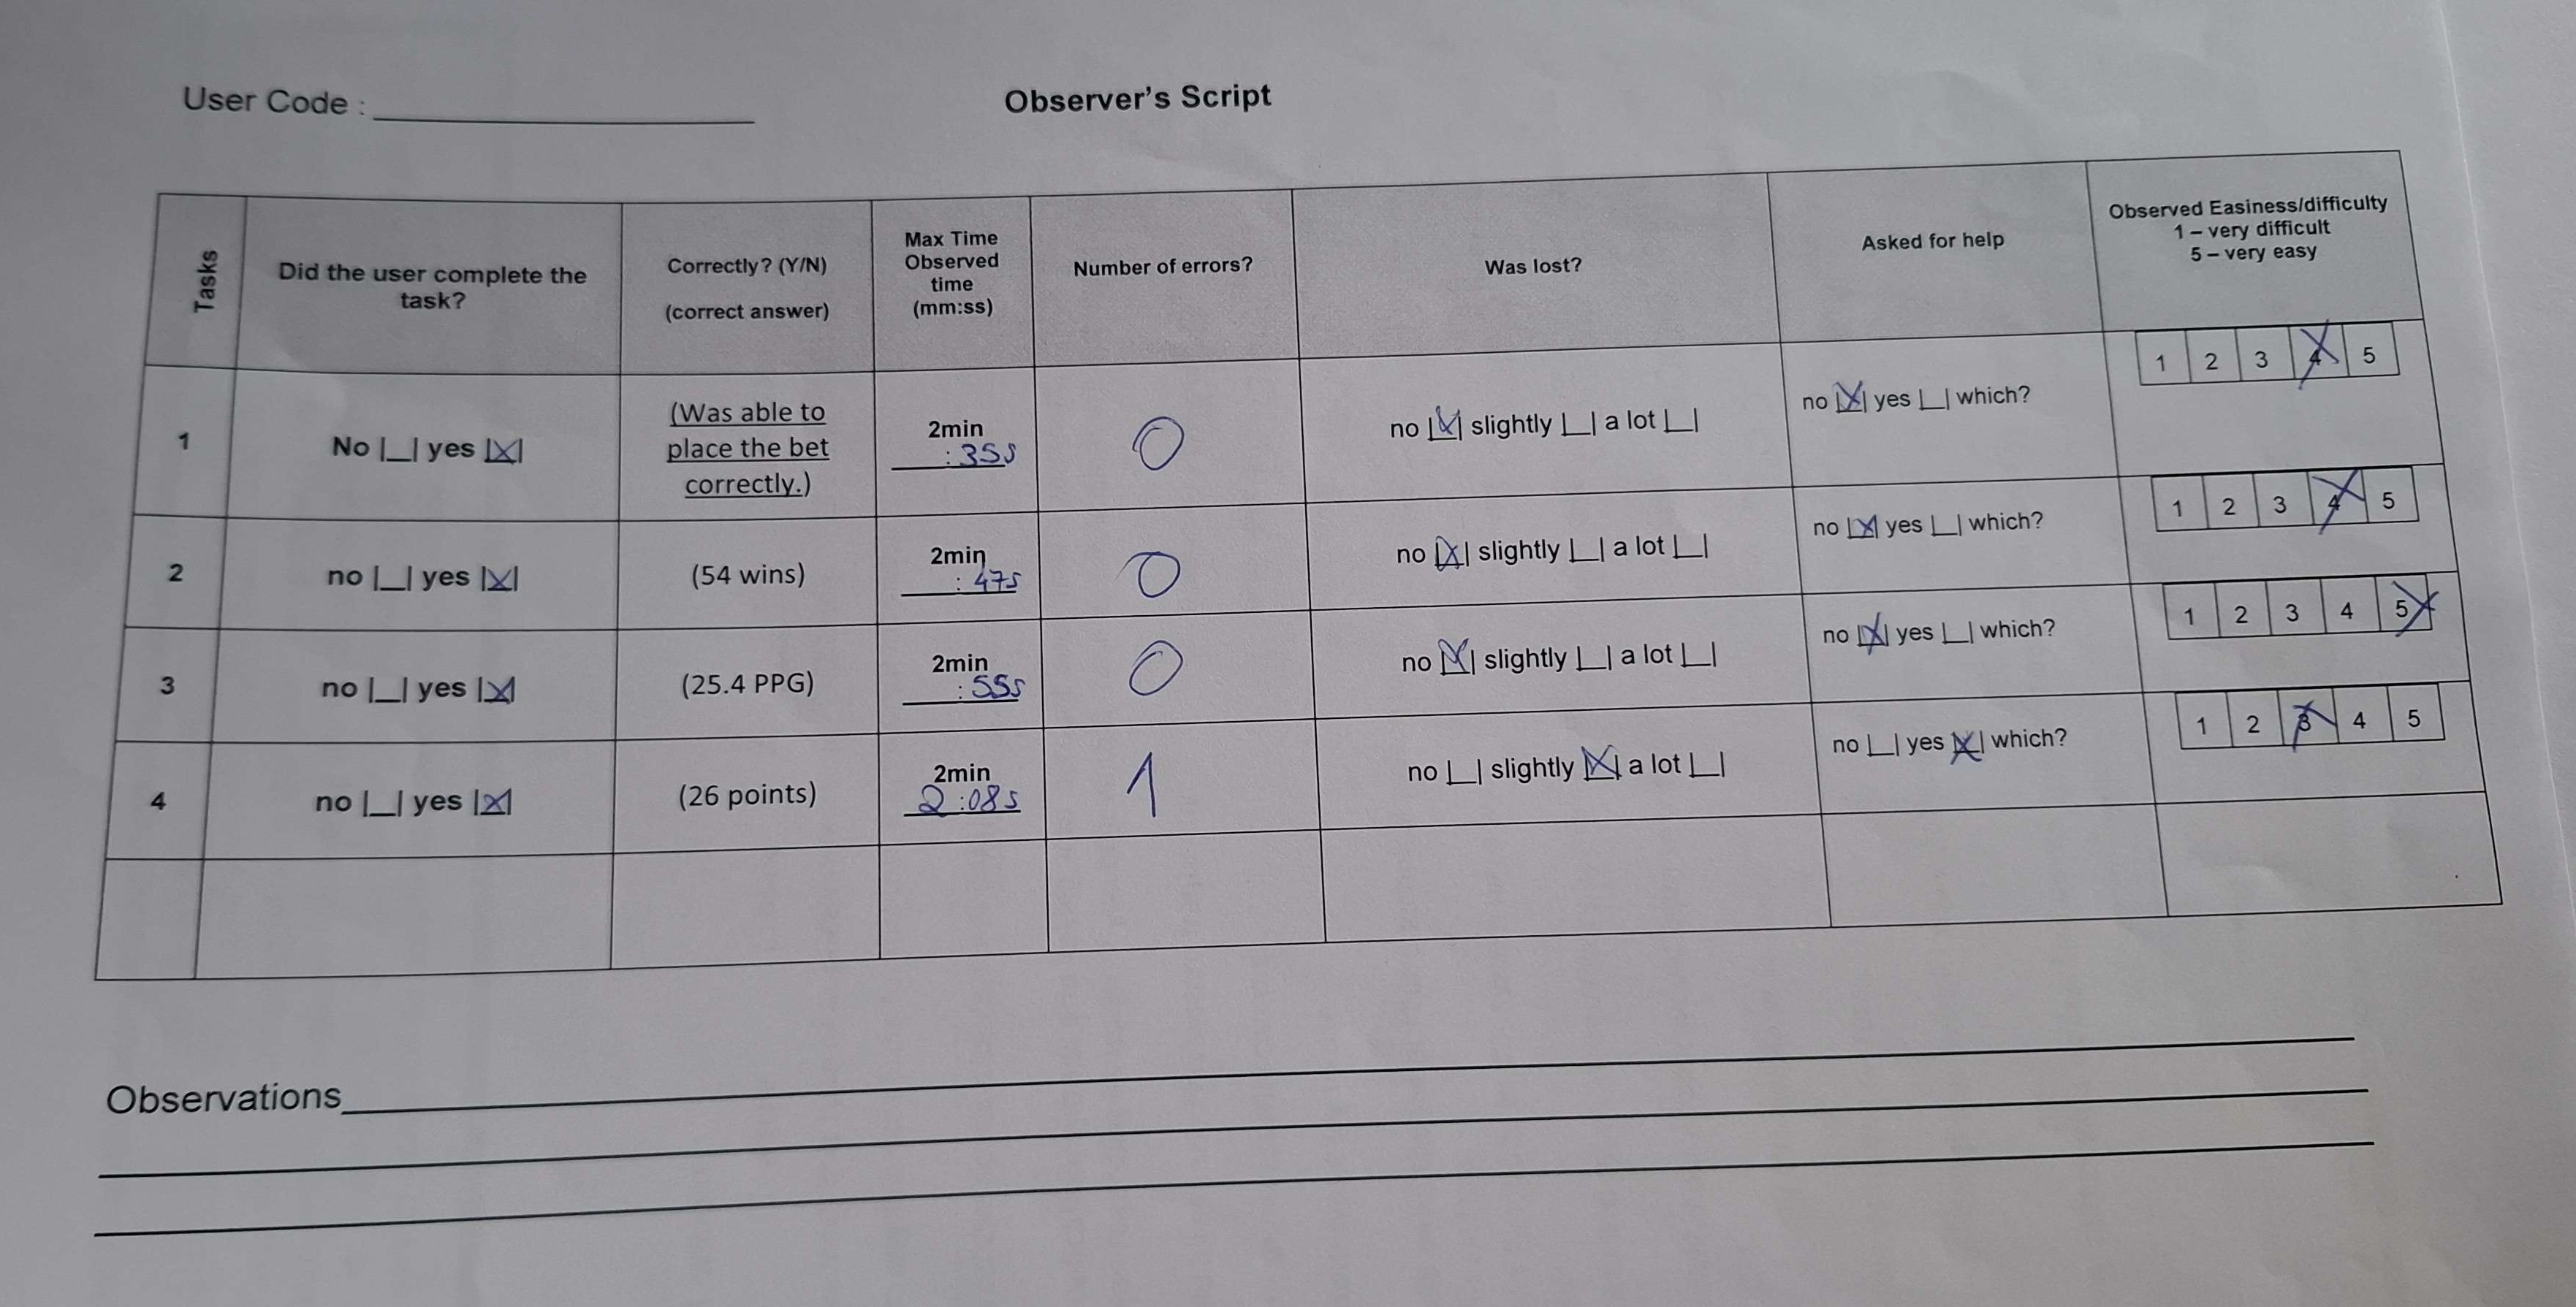 User Code : ____________
Observer's Script
Tasks
Did the user complete the
task?
Correctly? (Y/N)
(correct answer)
Max Time
Observed
time
(mm:ss)
Number of errors?
Was lost?
Asked for help
Observed Easiness/difficulty
1 – very difficult
5 – very easy
1
No |__| yes |X|
(Was able to
place the bet
correctly.)
2min
:35s
0
no |X| slightly |__| a lot |__|
no |X| yes |__| which?
1 2 3 4 5
2
no |__| yes |X|
(54 wins)
2min
:47s
0
no |X| slightly |__| a lot |__|
no |X| yes |__| which?
1 2 3 4 5
3
no |__| yes |X|
(25.4 PPG)
2min
:55s
0
no |X| slightly |__| a lot |__|
no |X| yes |__| which?
1 2 3 4 5
4
no |__| yes |X|
(26 points)
2min
2:08s
1
no |__| slightly |X| a lot |__|
no |__| yes |X| which?
1 2 3 4 5
Observations____________